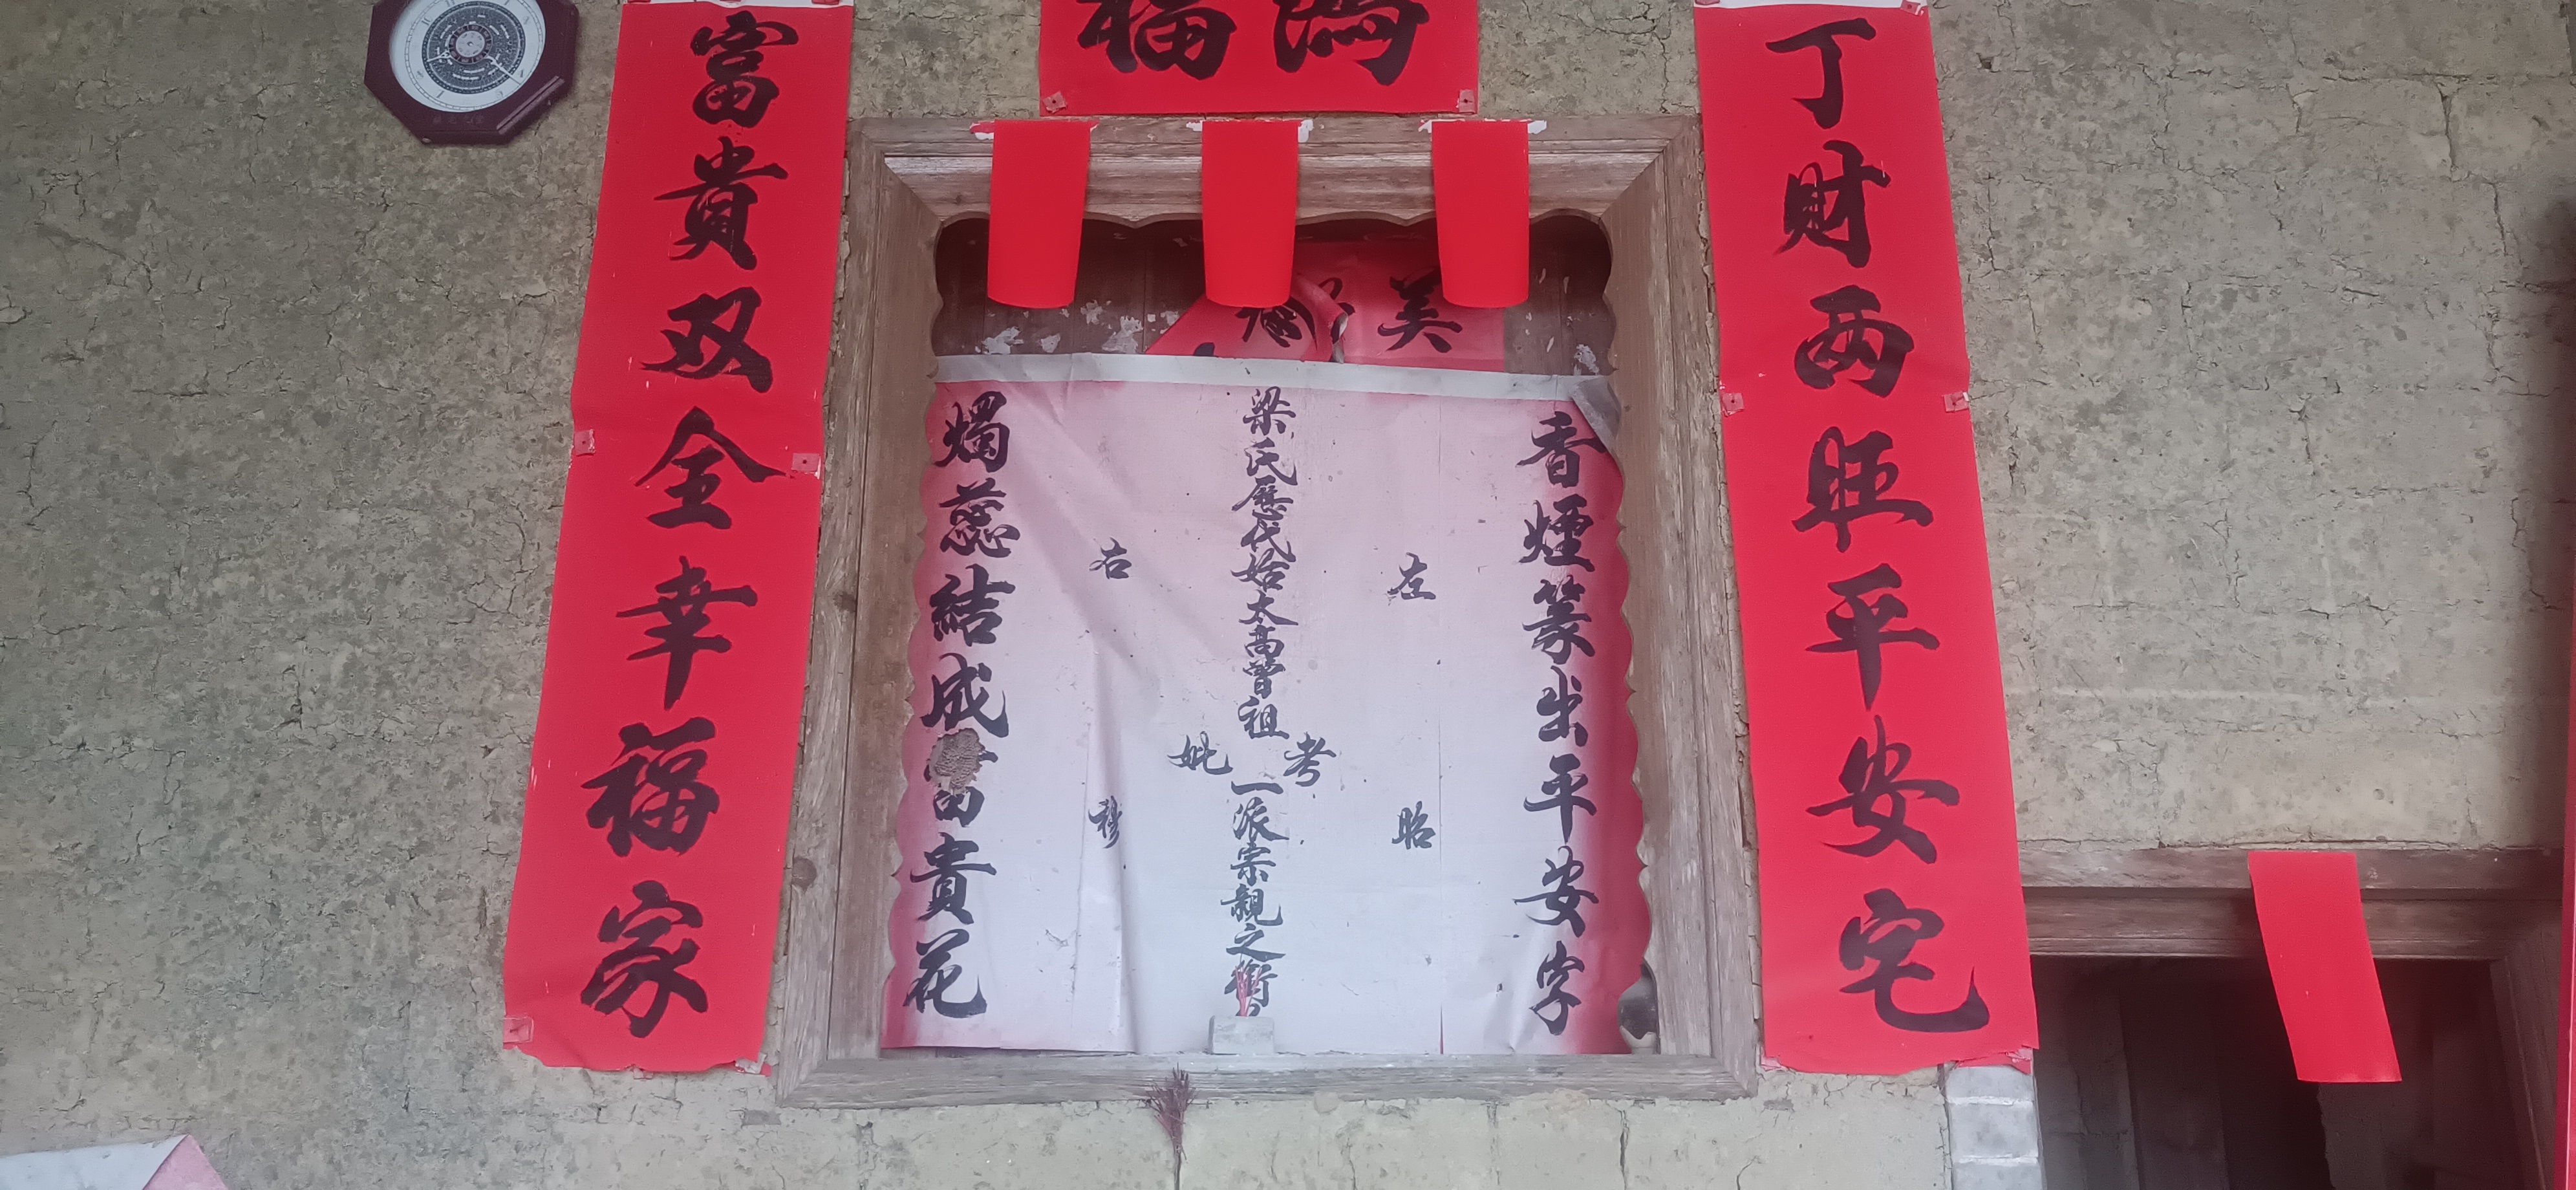 满福
丁财两旺平安宅
富貴双全幸福家
美
香煙篆出平安字
左昭
梁氏歷代始太高曾祖考妣一派宗親之
右穆
燭蕊結成富貴花